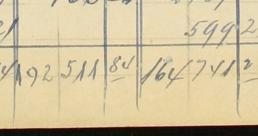 21 599 2
41 92 511 84 164 741 2